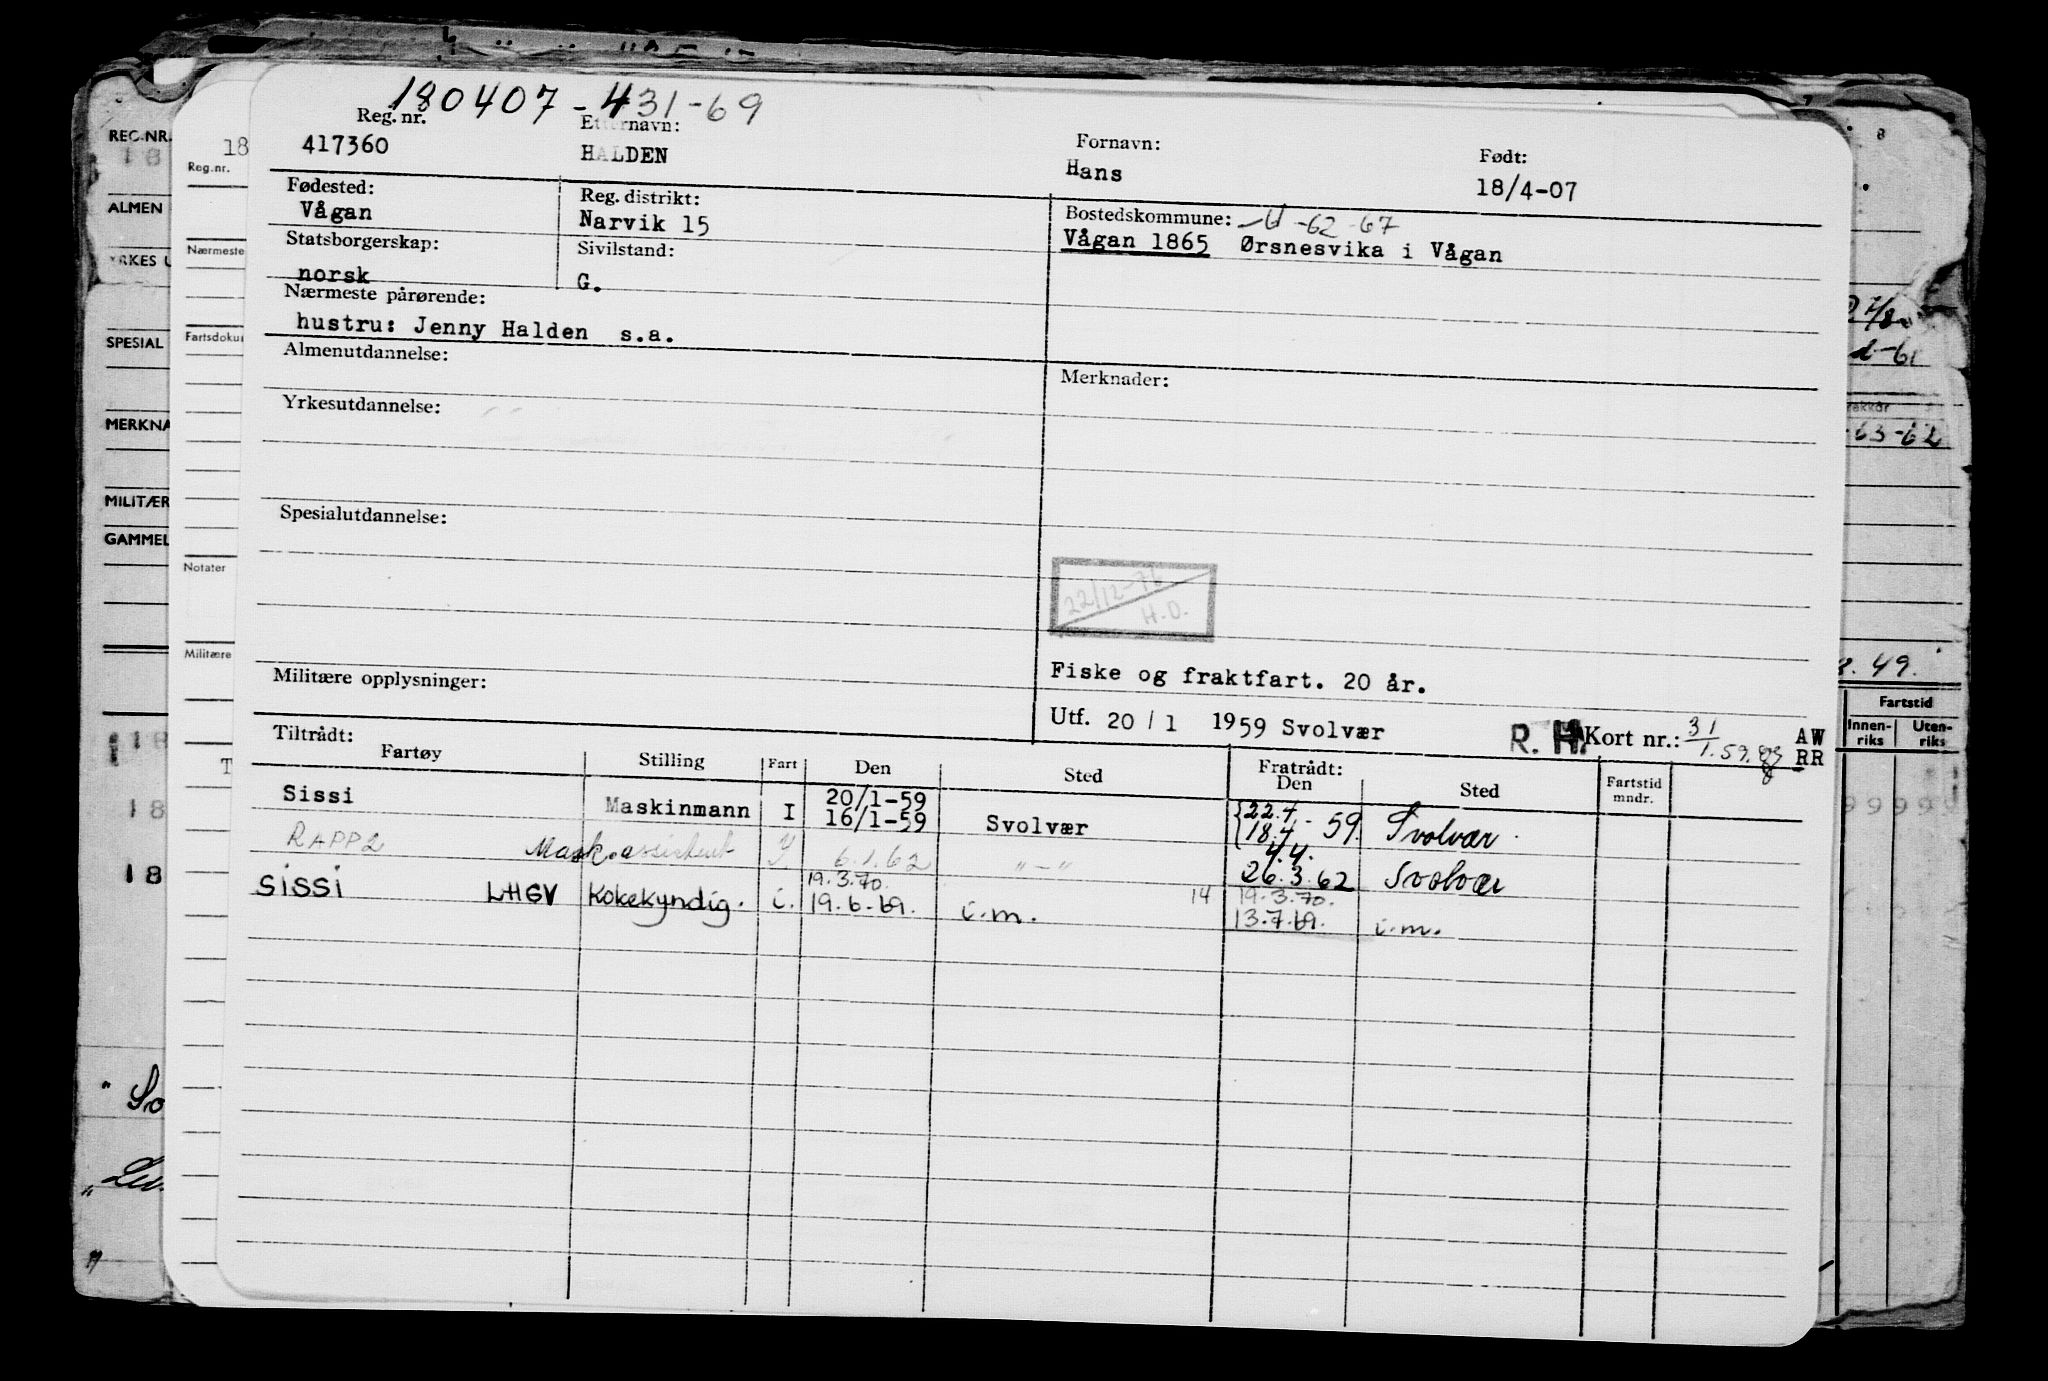 180407-431-69
Reg. nr. Etternavn: Fornavn: Født:
417360 HALDEN Hans 18/4-07
Fødested: Reg. distrikt: Bostedskommune: -62-67
Vågan Narvik 15 Vågan 1865 Ørsnesvika i Vågan
Statsborgerskap: Sivilstand:
norsk G.
Nærmeste pårørende:
hustru: Jenny Halden s.a.
Almenutdannelse: Merknader:
Yrkesutdannelse:
Spesialutdannelse:
22/12-71
H.O.
Fiske og fraktfart. 20 år.
Militære opplysninger:
Utf. 20/1 1959 Svolvær R. H. Kort nr.: 31/1.59. AW
RR
Tiltrådt: Fratrådt:
Fartøy Stilling Fart Den Sted Den Sted Fartstid mndr.
Sissi Maskinmann I 20/1-59 22.4
16/1-59 Svolvær 18.4-59. Svolvær.
RAPP2 Mask.assistent 6.1.62 "-" 4.4.
26.3.62 Svolvær
19.3.70. 14 19.3.70.
SISSI LHGV Kokekyndig. i. 19.6.69. i.m. 13.7.69. i.m.
REG.NR.
18
ALMEN
YRKES U
SPESIAL
MERKNA
MILITÆR
GAMMEL
18
18
18
18
Reg.nr.
Nærmeste
Fartsdoku
Notater
Militære
T
8
-61
rekkår
-63-62
49.
Fartstid
Innen-riks Uten-riks
9 9 9 9 9
" So
"
"